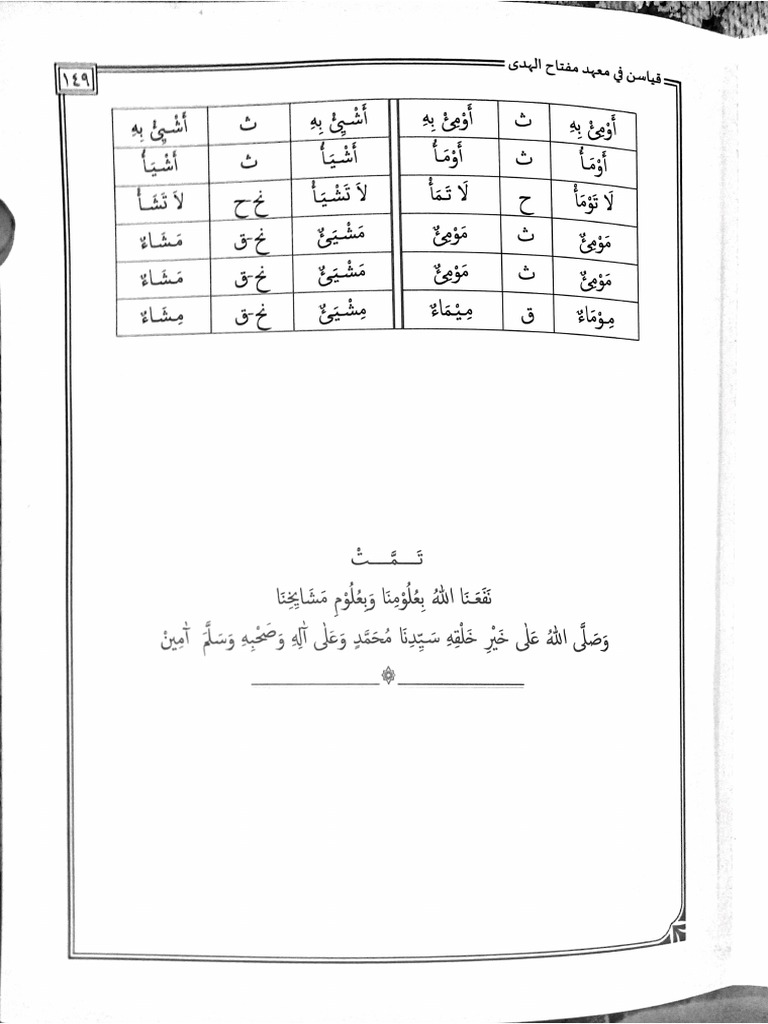 قياسن في معهد مفتاح الهدى ١٤٩
أَوْمِئْ بِهِ ث أَوْمِئْ بِهِ أَشْيِئْ بِهِ ث أَشْيِئْ بِهِ
أَوْمَأُ ث أَوْمَأُ أَشْيَأُ ث أَشْيَأُ
لَا تَوْمَأْ ح لَا تَمَأْ لَا تَشْيَأْ نح-ح لَا تَشَأْ
مَوْمِئٌ ث مَوْمِئٌ مَشْيَئٌ نح-ق مَشَاءٌ
مَوْمِئٌ ث مَوْمِئٌ مَشْيَئٌ نح-ق مَشَاءٌ
مِوْمَاءٌ ق مِيْمَاءٌ مِشْيَئٌ نح-ق مِشَاءٌ
تَمَّتْ
نَفَعَنَا اللهُ بِعُلُوْمِنَا وَبِعُلُوْمِ مَشَايِخِنَا
وَصَلَّى اللهُ عَلٰى خَيْرِ خَلْقِهِ سَيِّدِنَا مُحَمَّدٍ وَعَلٰى آلِهِ وَصَحْبِهِ وَسَلَّمَ آمِيْنْ